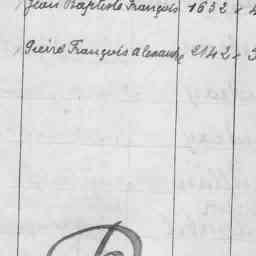 Jean Baptiste François 1632
Pierre François Alexandre 2142